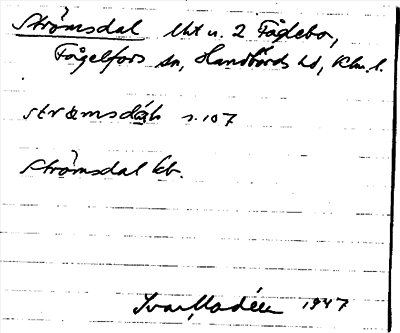 Strömsdal lht u. 2 Fåglebo,
Fågelfors sn, Handbörds hd, Klm. l.
stræmsdáḷ s. 107
Strömsdal kb.
Ivar Modéer 1947